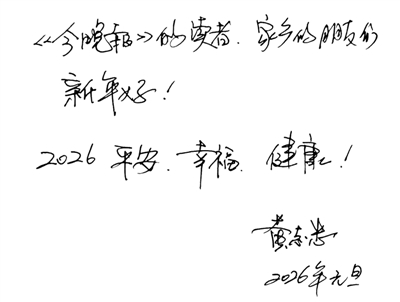 《今晚报》的读者、家乡的朋友们
新年好！
2026 平安、幸福、健康！
黄志忠
2026年元旦